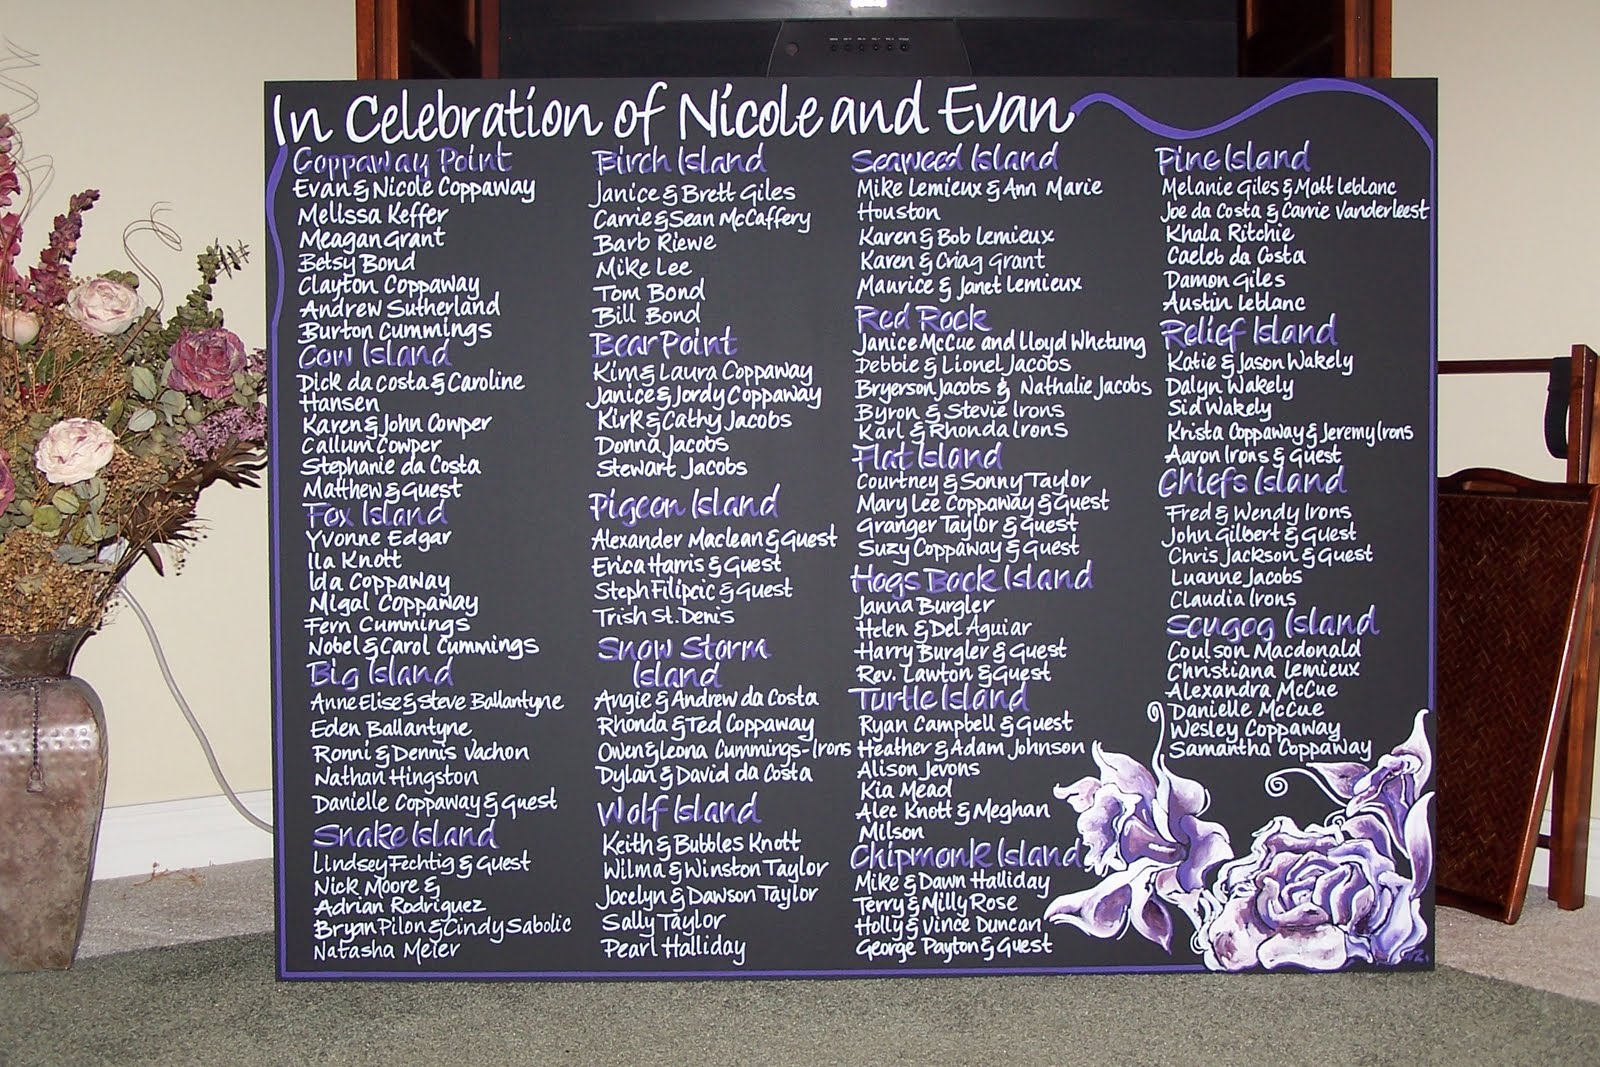 In Celebration of Nicole and Evan
Coppaway Point
Evan & Nicole Coppaway
Melissa Keffer
Meagan Grant
Betsy Bond
Clayton Coppaway
Andrew Sutherland
Burton Cummings
Cow Island
Dick da Costa & Caroline
Hansen
Karen & John Cowper
Callum Cowper
Stephanie da Costa
Matthew & Guest
Fox Island
Yvonne Edgar
Ila Knott
Ida Coppaway
Migal Coppaway
Fern Cummings
Nobel & Carol Cummings
Big Island
Anne Elise & Steve Ballantyne
Eden Ballantyne
Ronni & Dennis Vachon
Nathan Hingston
Danielle Coppaway & Guest
Snake Island
Lindsey Fechtig & Guest
Nick Moore &
Adrian Rodriguez
Bryan Pilon & Cindy Sabolic
Natasha Meier
Birch Island
Janice & Brett Giles
Carrie & Sean McCaffery
Barb Riewe
Mike Lee
Tom Bond
Bill Bond
Bear Point
Kim & Laura Coppaway
Janice & Jordy Coppaway
Kirk & Cathy Jacobs
Donna Jacobs
Stewart Jacobs
Pigeon Island
Alexander Maclean & Guest
Erica Harris & Guest
Steph Filipcic & Guest
Trish St. Denis
Snow Storm
Island
Angie & Andrew da Costa
Rhonda & Ted Coppaway
Owen & Leona Cummings-Irons
Dylan & David da Costa
Wolf Island
Keith & Bubbles Knott
Wilma & Winston Taylor
Jocelyn & Dawson Taylor
Sally Taylor
Pearl Halliday
Seaweed Island
Mike Lemieux & Ann Marie
Houston
Karen & Bob Lemieux
Karen & Criag Grant
Maurice & Janet Lemieux
Red Rock
Janice McCue and Lloyd Whetung
Debbie & Lionel Jacobs
Bryerson Jacobs & Nathalie Jacobs
Byron & Stevie Irons
Karl & Rhonda Irons
Flat Island
Courtney & Sonny Taylor
Mary Lee Coppaway & Guest
Granger Taylor & Guest
Suzy Coppaway & Guest
Hogs Back Island
Janna Burgler
Helen & Del Aguiar
Harry Burgler & Guest
Rev. Lawton & Guest
Turtle Island
Ryan Campbell & Guest
Heather & Adam Johnson
Alison Jevons
Kia Mead
Alec Knott & Meghan
Milson
Chipmonk Island
Mike & Dawn Halliday
Terry & Milly Rose
Holly & Vince Duncan
George Payton & Guest
Pine Island
Melanie Giles & Matt Leblanc
Joe da Costa & Carrie Vanderleest
Khala Ritchie
Caeleb da Costa
Damon Giles
Austin Leblanc
Relief Island
Katie & Jason Wakely
Dalyn Wakely
Sid Wakely
Krista Coppaway & Jeremy Irons
Aaron Irons & Guest
Chiefs Island
Fred & Wendy Irons
John Gilbert & Guest
Chris Jackson & Guest
Luanne Jacobs
Claudia Irons
Scugog Island
Coulson Macdonald
Christiana Lemieux
Alexandra McCue
Danielle McCue
Wesley Coppaway
Samantha Coppaway